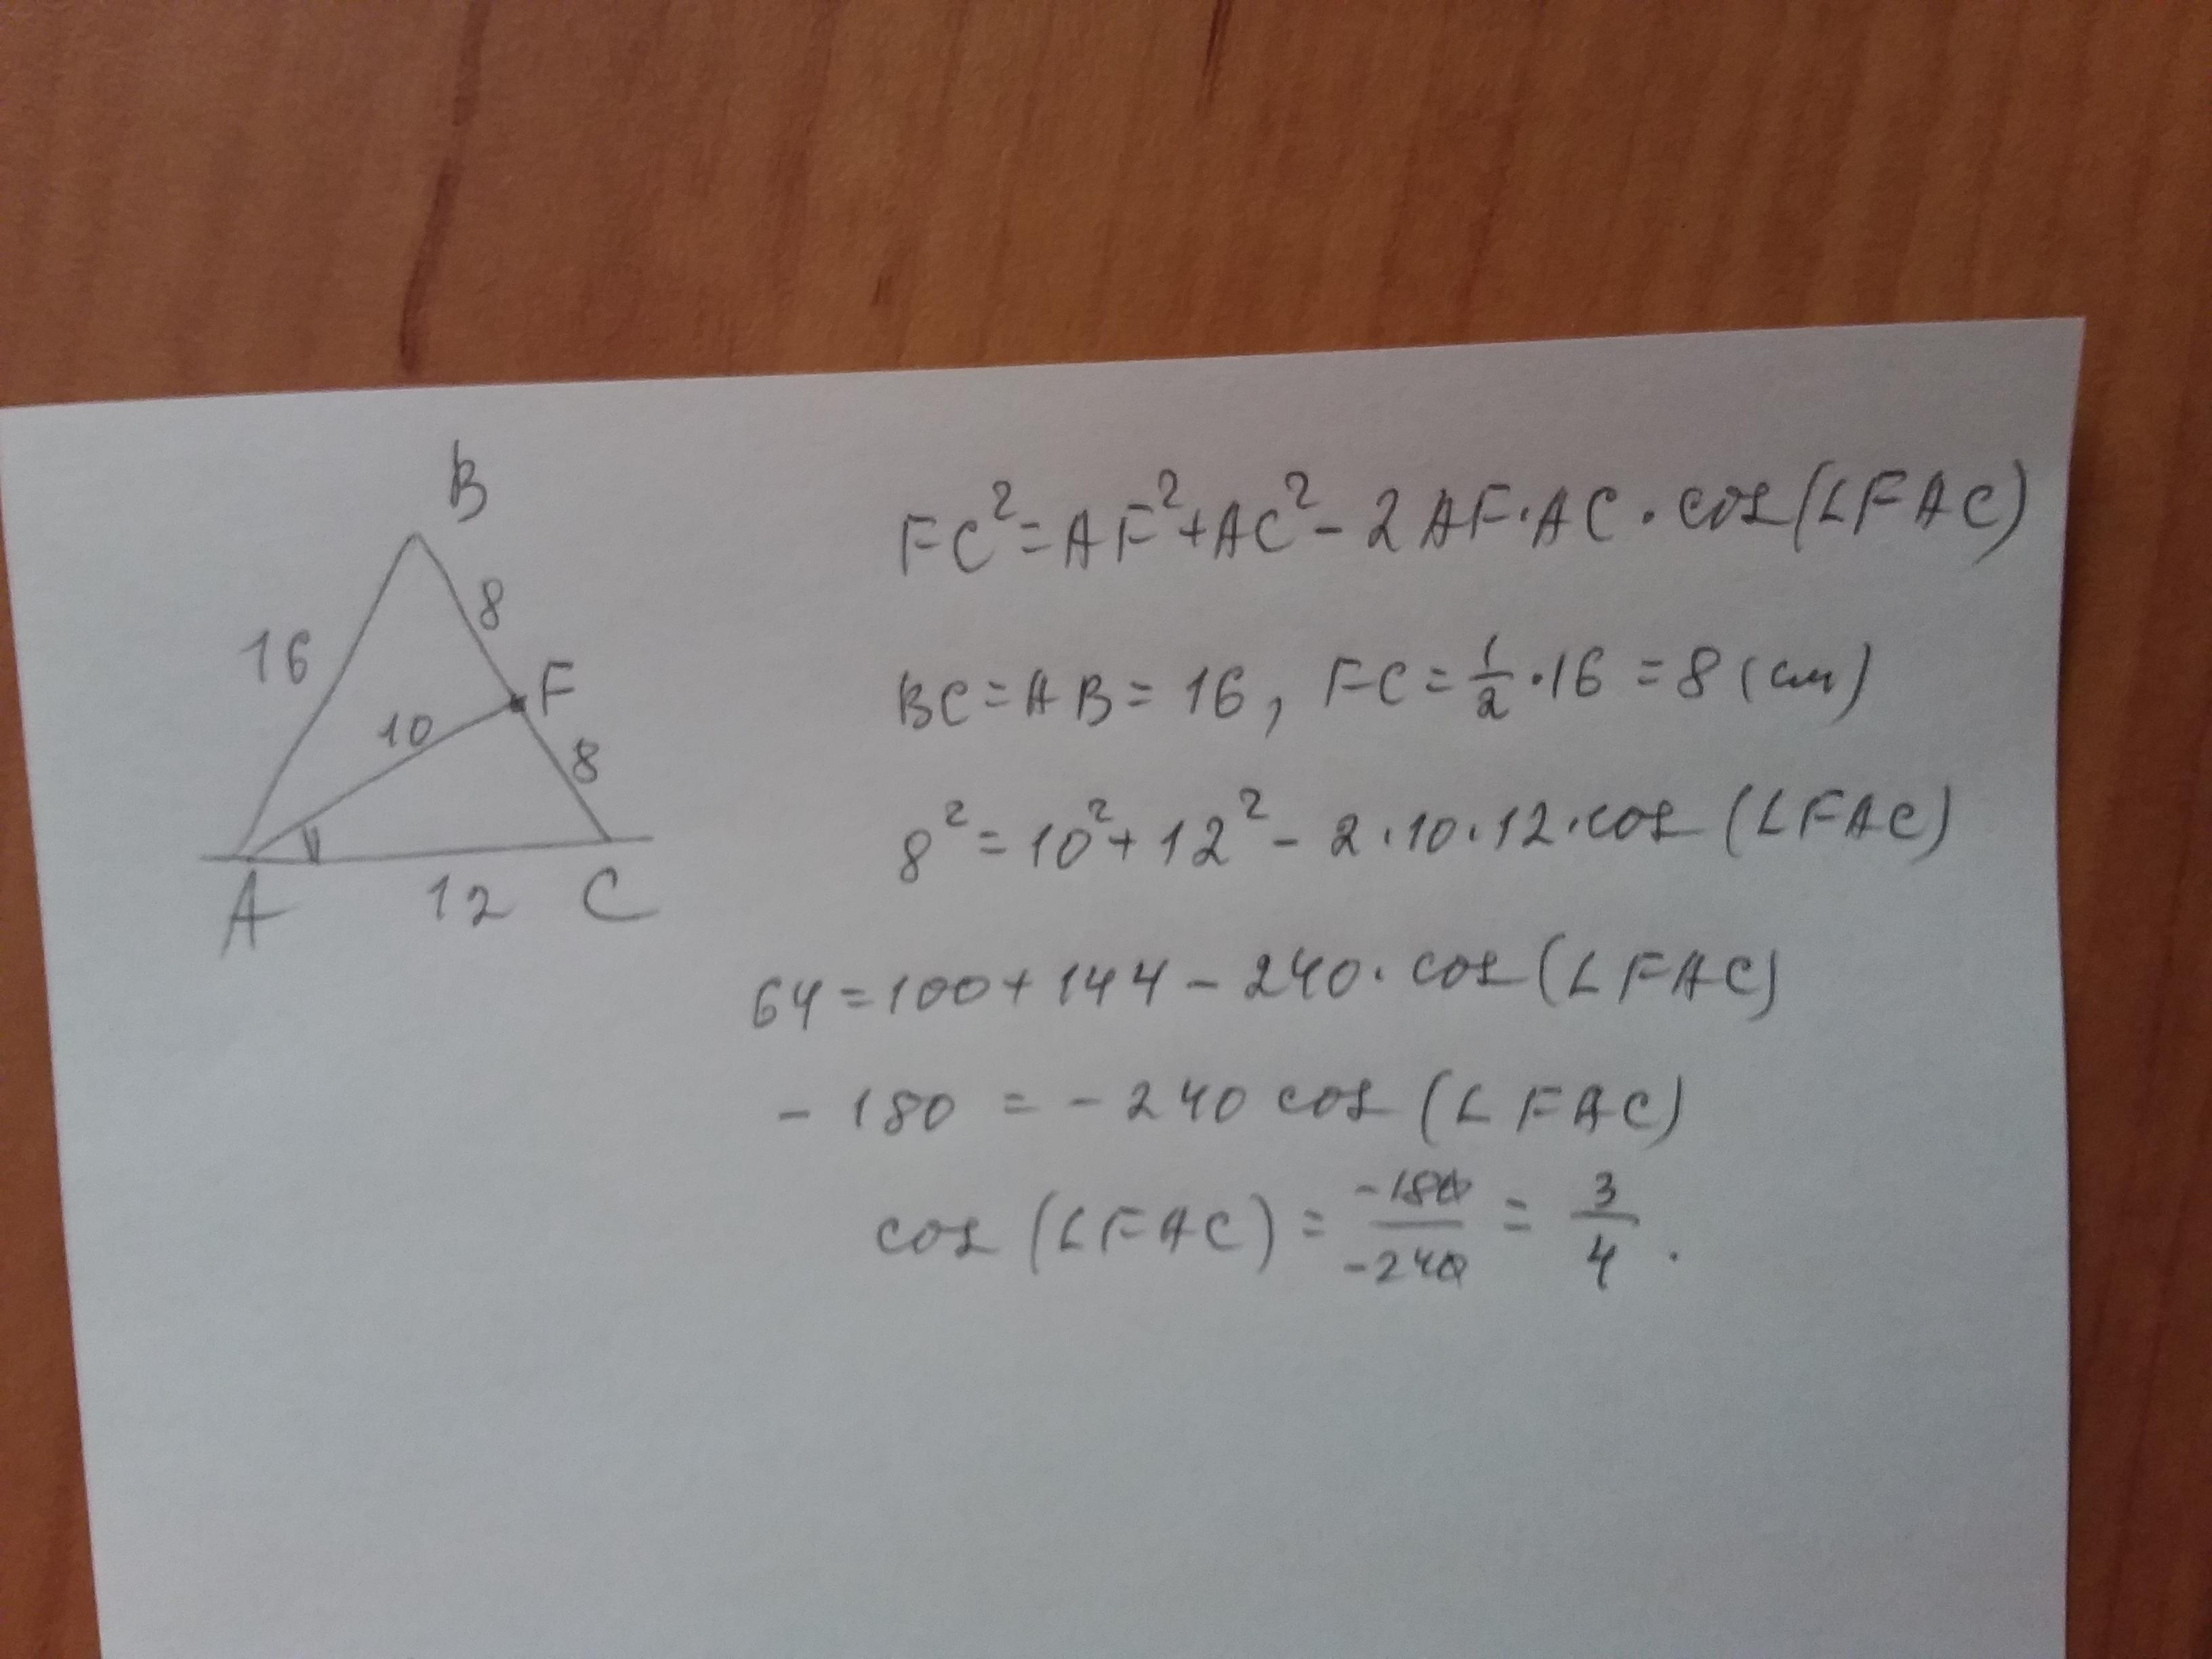 B
16
8
F
10
8
A
12
C
FC²=AF²+AC²-2AF·AC·cos(∠FAC)
BC=AB=16, FC=1/2·16=8(см)
8²=10²+12²-2·10·12·cos(∠FAC)
64=100+144-240·cos(∠FAC)
-180=-240cos(∠FAC)
cos(∠FAC)=-180/-240=3/4.